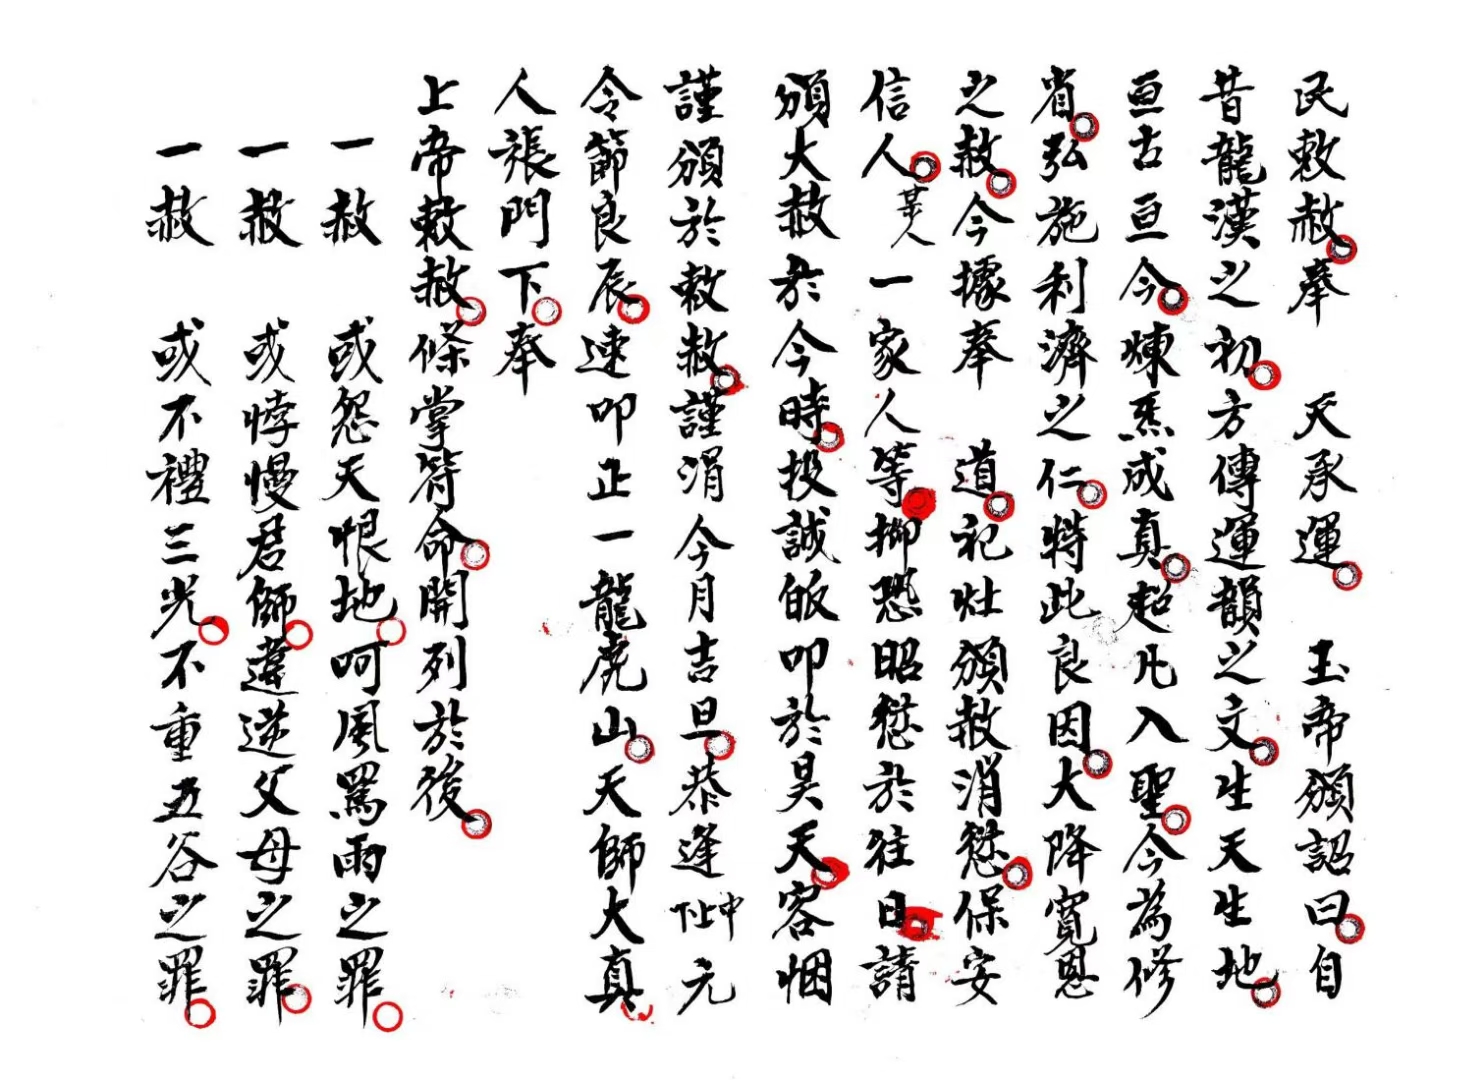 民敕赦奉 天承運 玉帝頒詔曰自
昔龍漢之初方傳運韻之文生天生地
亘古亘今煉炁成真超凡入聖今為修
省弘施利濟之仁特此良因大降寬恩
之赦今據奉 道祀灶頒赦消愆保安
信人某人一家人等抑恐昭愆於往日請
頒大赦於今時投誠皈叩於昊天容悃
謹頒於敕赦謹涓今月吉旦恭逢上中下元
令節良辰速叩正一龍虎山天師大真
人張門下奉
上帝敕赦條掌符命開列於後
一赦 或怨天恨地呵風罵雨之罪
一赦 或悖慢君師違逆父母之罪
一赦 或不禮三光不重五谷之罪